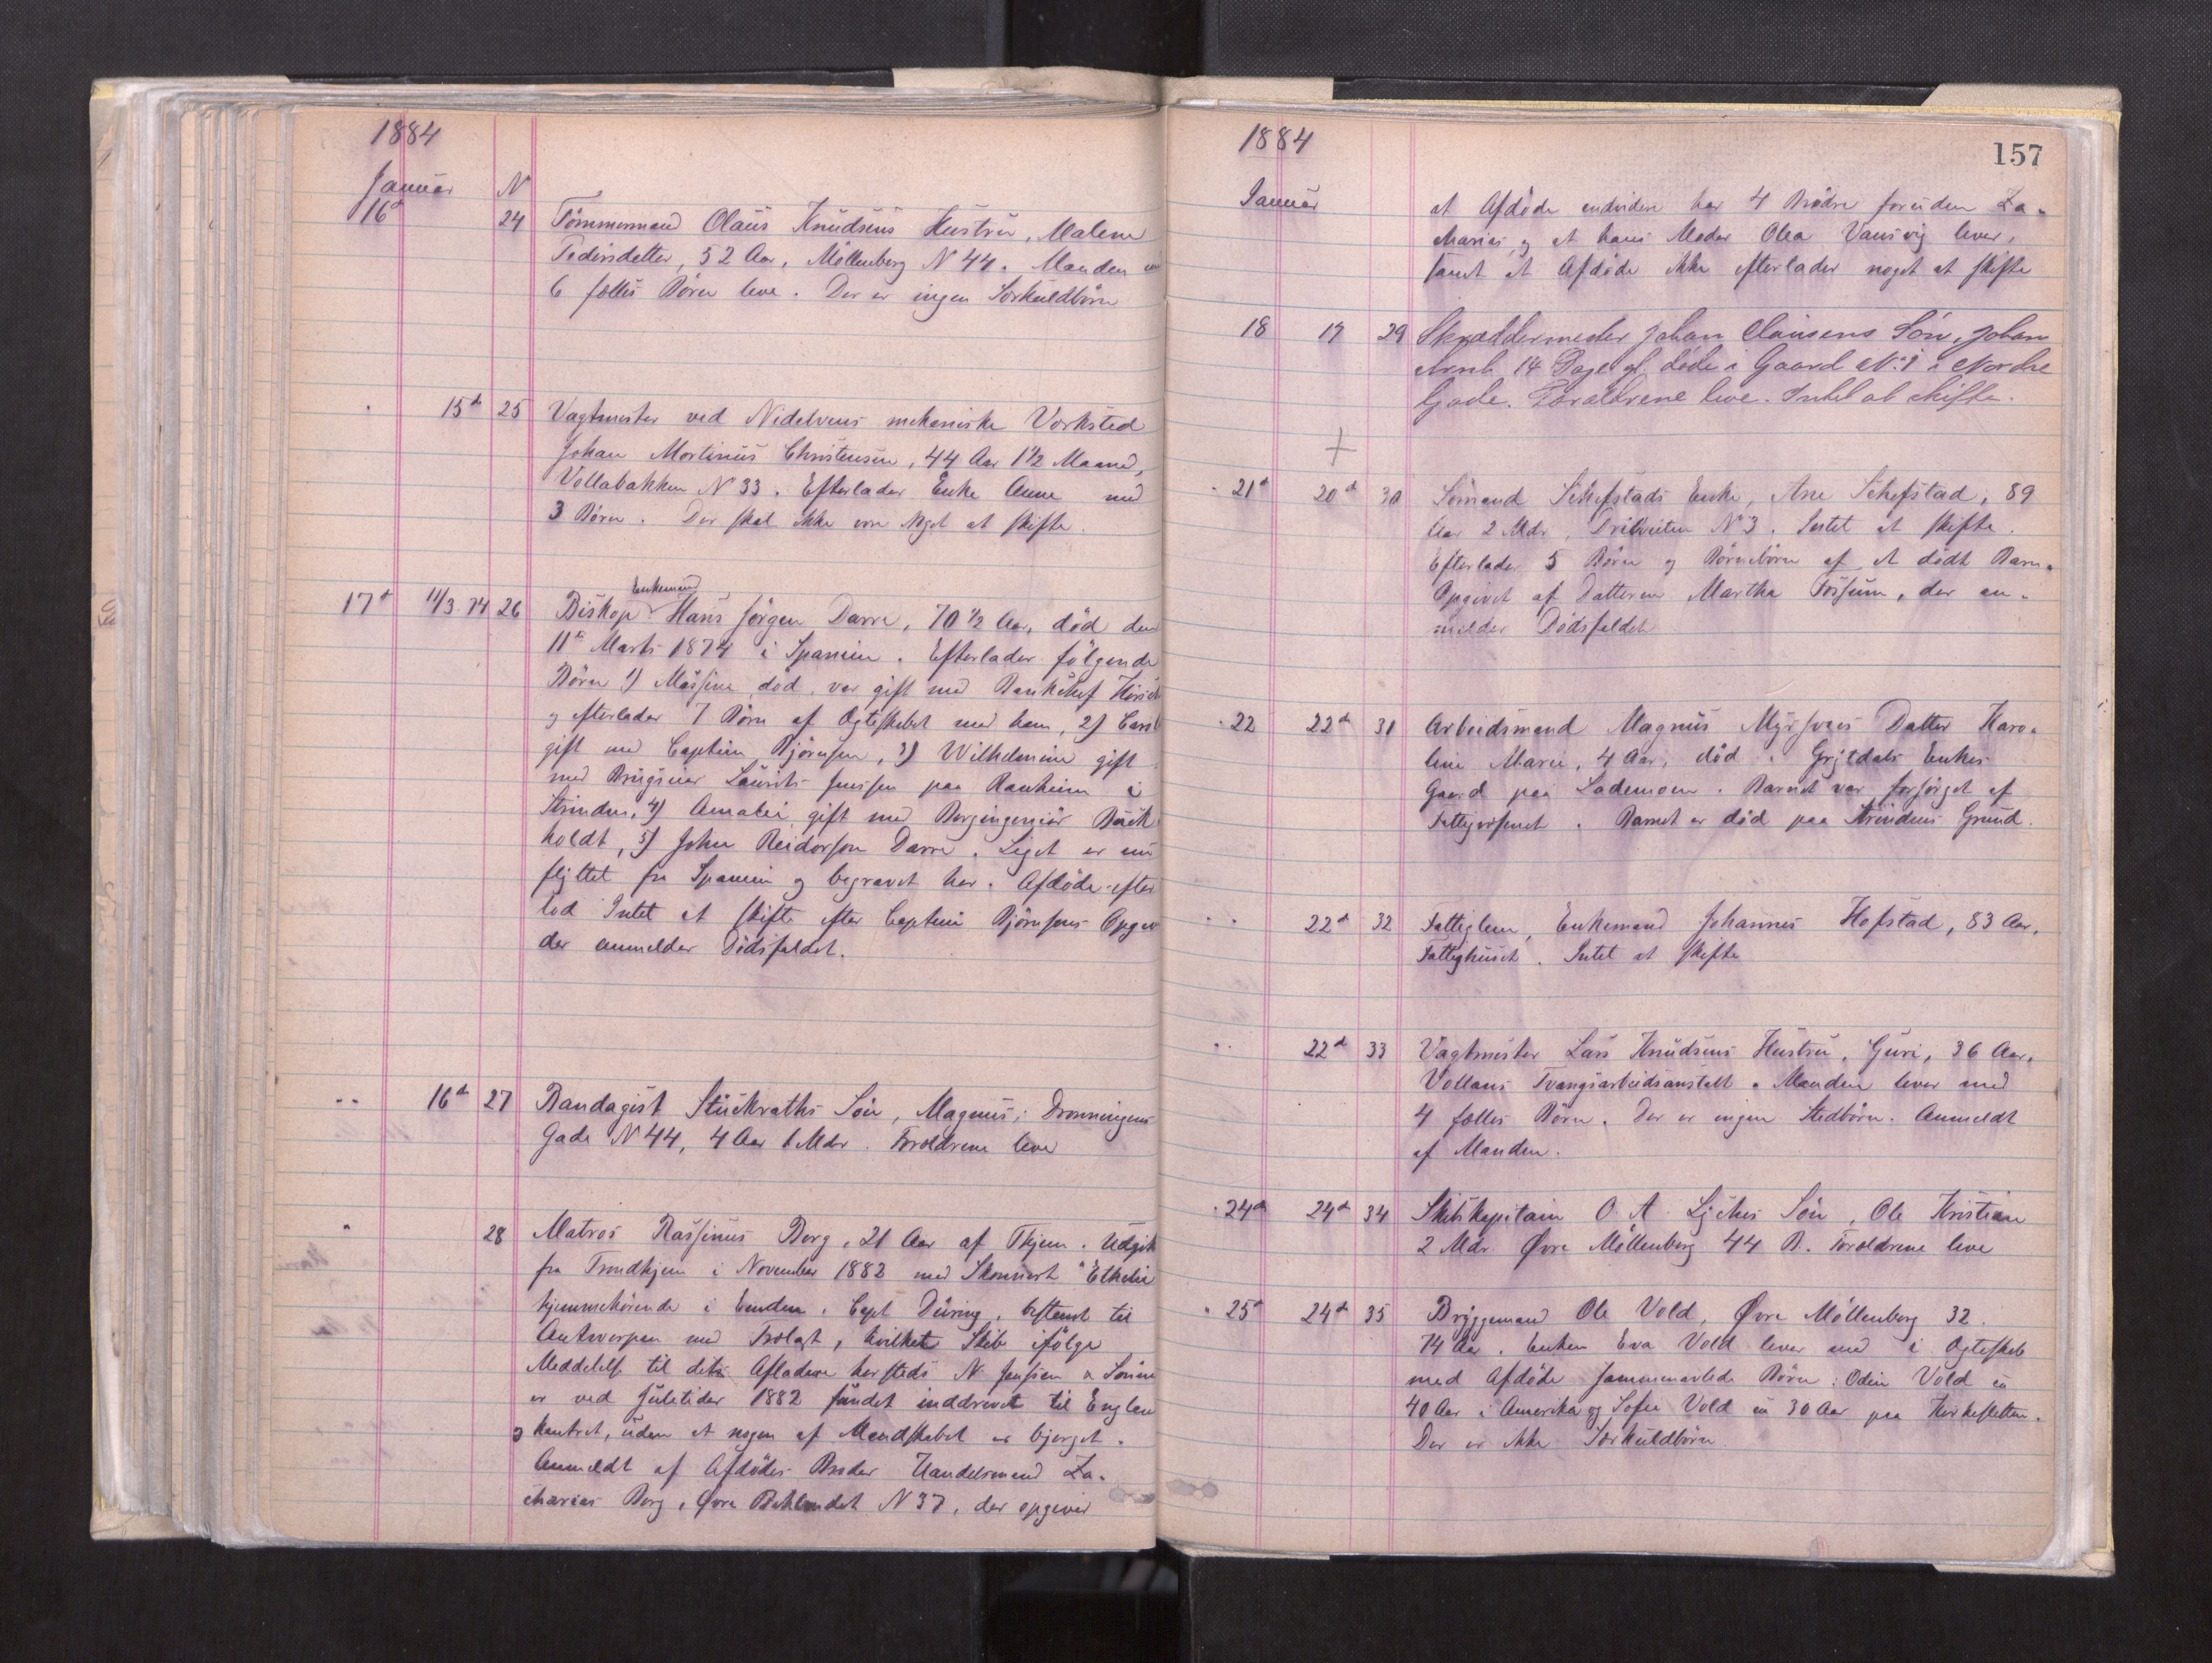 1884
Januar N
16d 24 Tömmermand Olaus Knudsens Hustru, Malene
Pedersdatter, 52 Aar, Möllenberg N 44. Manden og
6 fælles Börn leve. Der er ingen Særkuldbörn
15d 25 Vagtmester ved Nidelvens mekaniske Værksted
Johan Martinus Christensen, 44 Aar 1½ Maaned,
Vollabakken N 33. Efterlader Enke Anne med
3 Börn. Der skal ikke være Noget at skifte.
Enkemand
17d 11/3.74 26 Biskop Hans Jörgen Darre, 70 ½ Aar, död den
11te Marts 1874 i Spanien. Efterlader fölgende
Börn 1) Massine, död, var gift med Bankchef
og efterlader 7 Börn af Ægteskabet med ham, 2)
gift med Captein Björnsen, 3) Wilhelmine gift
med Brugseier Laurits Jenssen paa Ranheim i
Strinden, 4) Amalie gift med Bergingeniör Buch
holdt, 5) John Reidarson Darre. Liget er nu
flyttet fra Spanien og begravet her. Afdöde efter
lod Intet at skifte efter Captein Björnsens Opgiv
der anmelder Dödsfaldet.
" " 16d 27 Bandagist Stückraths Sön, Magnus, Dronningens
Gade N 44, 4 Aar 6 Mdr. Forældrene leve
" 28 Matros Rassinus Borg, 21 Aar af Thjem. Udgik
fra Trondhjem i November 1882 med Skonnert "Ethelie
hjemmehörende i Emden, Capt Düring, bestemt til
Antwerpen med Trælast, hvilket Skib ifölge
Meddelelse til dets Afladere hersteds N. Jenssen & Sönner
er ved Juletider 1882 fundet inddrevet til Englan
og kantret, uden at nogen af Mandskabet er bjerget.
Anmeldt af Afdödes Broder Handelsmand Za-
charias Borg, Övre Baklandet N 37, der opgiver
1884
157
Januar at Afdöde endvidere har 4 Brödre foruden Za-
charias, og at hans Moder Olea Vansvig lever,
samt at Afdöde ikke efterlader noget at skifte
18 17 29 Skræddermester Johan Clausens Sön, Johan
Arnt, 14 Dage gl. döde i Gaard No 1 i Nordre
Gade. Forældrene leve. Intet at skifte.
+
21d 20d 30 Sömand Schefstads Enke, Ane Schefstad, 89
Aar 2 Mdr, N 3. Intet at skifte.
Efterlader 5 Börn og Börnebörn af et dödt Barn.
Opgivet af Datteren Martha Fossum, der an-
melder Dödsfaldet
22 22d 31 Arbeidsmand Magnus Datter Karo-
line Marie, 4 Aar, död i Enkes
Gaard paa Lademoen. Barnet var forsörget af
Fattigvæsenet. Barnet er död paa Strindens Grund.
" " 22d 32 Fattiglem, Enkemand Johannes Hofstad, 83 Aar,
Fattighuset. Intet at skifte
" " 22d 33 Vagtmester Lars Knudsens Hustru, Guri, 36 Aar,
Vollans Tvangsarbeidsanstalt. Manden lever med
4 fælles Börn. Der er ingen Stedbörn. Anmeldt
af Manden.
24d 24d 34 Skibskapitain O. A. Sön, Ole Kristian
2 Mdr. Øvre Möllenberg 44 B. Forældrene leve
25d 24d 35 Bryggemand Ole Vold, Øvre Möllenberg 32.
74 Aar. Enken Eva Vold lever med i Ægteskab
med Afdöde sammenavlede Börn: Odin Vold ca
40 Aar i Amerika og Sofie Vold ca 30 Aar paa Kirkesletten.
Der er ikke Særkuldbörn